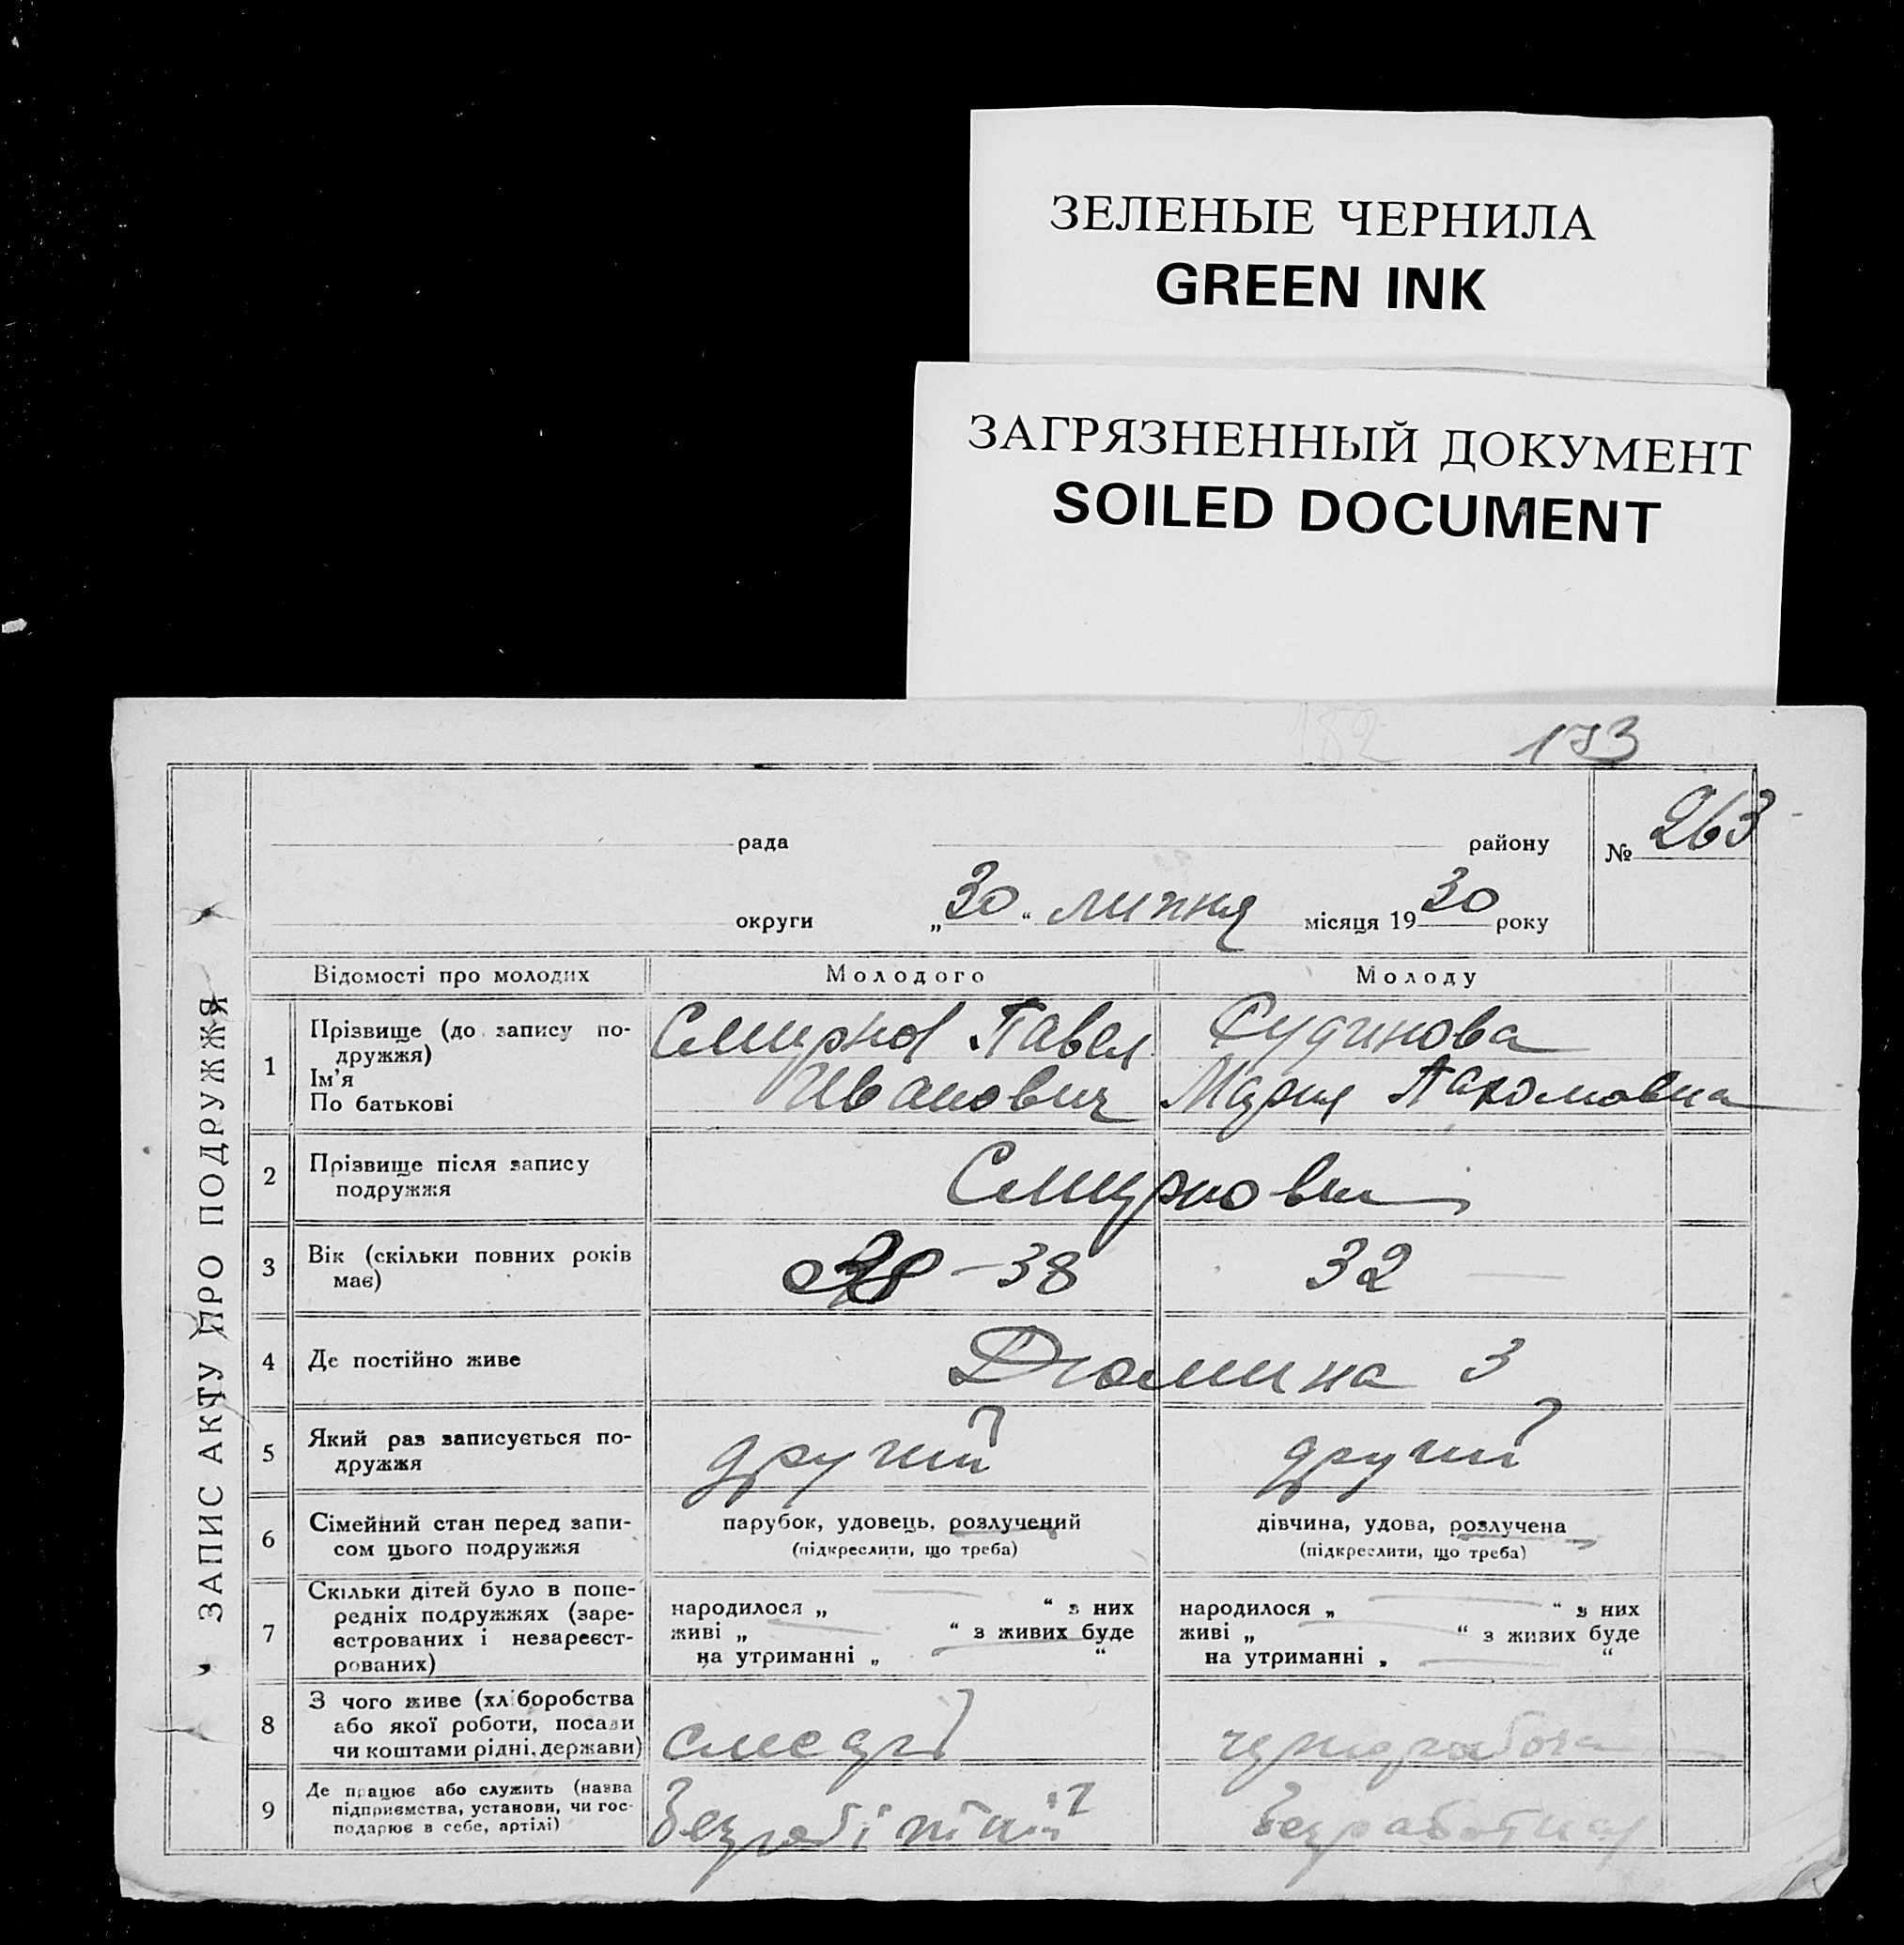 ЗЕЛЕНЫЕ ЧЕРНИЛА
GREEN INK
ЗАГРЯЗНЕННЫЙ ДОКУМЕНТ
SOILED DOCUMENT
182
173
ЗАПИС АКТУ ПРО ПОДРУЖЖЯ
рада району № 263
округи „30“ липня місяця 1930 року
Відомості про молодих Молодого Молоду
1 Прізвище (до запису по-
дружжя)
Ім'я
По батькові
Смирнов Павел
Иванович
Судинова
Мария Пахомовна
2 Прізвище після запису
подружжя
Смирнови
3 Вік (скільки повних років
має)
38 32
4 Де постійно живе
Дюмина 3
5 Який раз записується по-
дружжя
другий другий
6 Сімейний стан перед запи-
сом цього подружжя
парубок, удовець, розлучений
(підкреслити, що треба)
дівчина, удова, розлучена
(підкреслити, що треба)
7 Скільки дітей було в попе-
редніх подружжях (заре-
єстрованих і незареєст-
рованих)
народилося „ “ з них
живі „ “ з живих буде
на утриманні „ “
народилося „ “ з них
живі „ “ з живих буде
на утриманні „ “
8 З чого живе (хліборобства
або якої роботи, посади
чи коштами рідні, держави)
чорнорабоча
9 Де працює або служить (назва
підприємства, установи, чи гос-
подарює в себе, артілі)
Безробітний Безработная